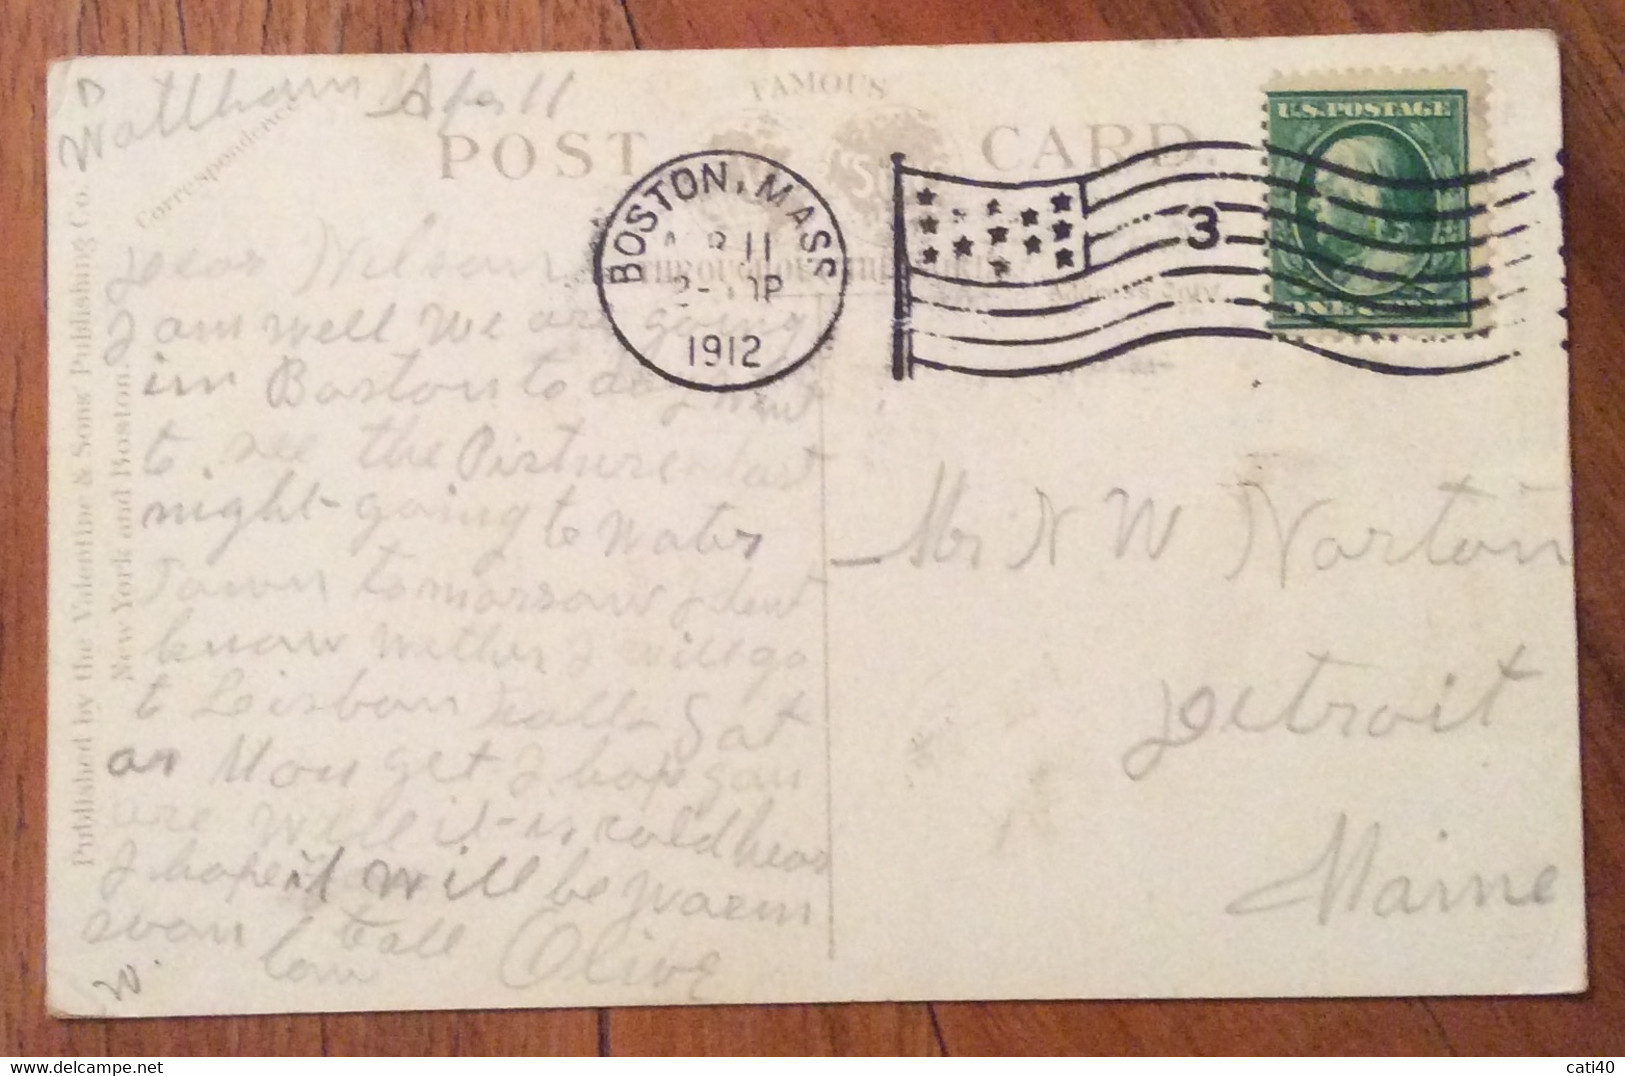 Waltham Apr 11
Correspondence.
FAMOUS
POST CARD.
BOSTON, MASS
11
1912
3
U.S.POSTAGE
ONE
Published by the Valentine & Sons' Publishing Co.
New York and Boston.
Dear Wilson
I am well We are going
in Boston to day I went
to see the Pictures last
night going to Water
Town tomorrow I dont
know wether I will go
to Lisbon Falls Sat
or Mon yet I hope you
are well it is cold hear
I hope it will be warm
soon
Olive
W.
Mr N W Norton
Detroit
Maine
cati40